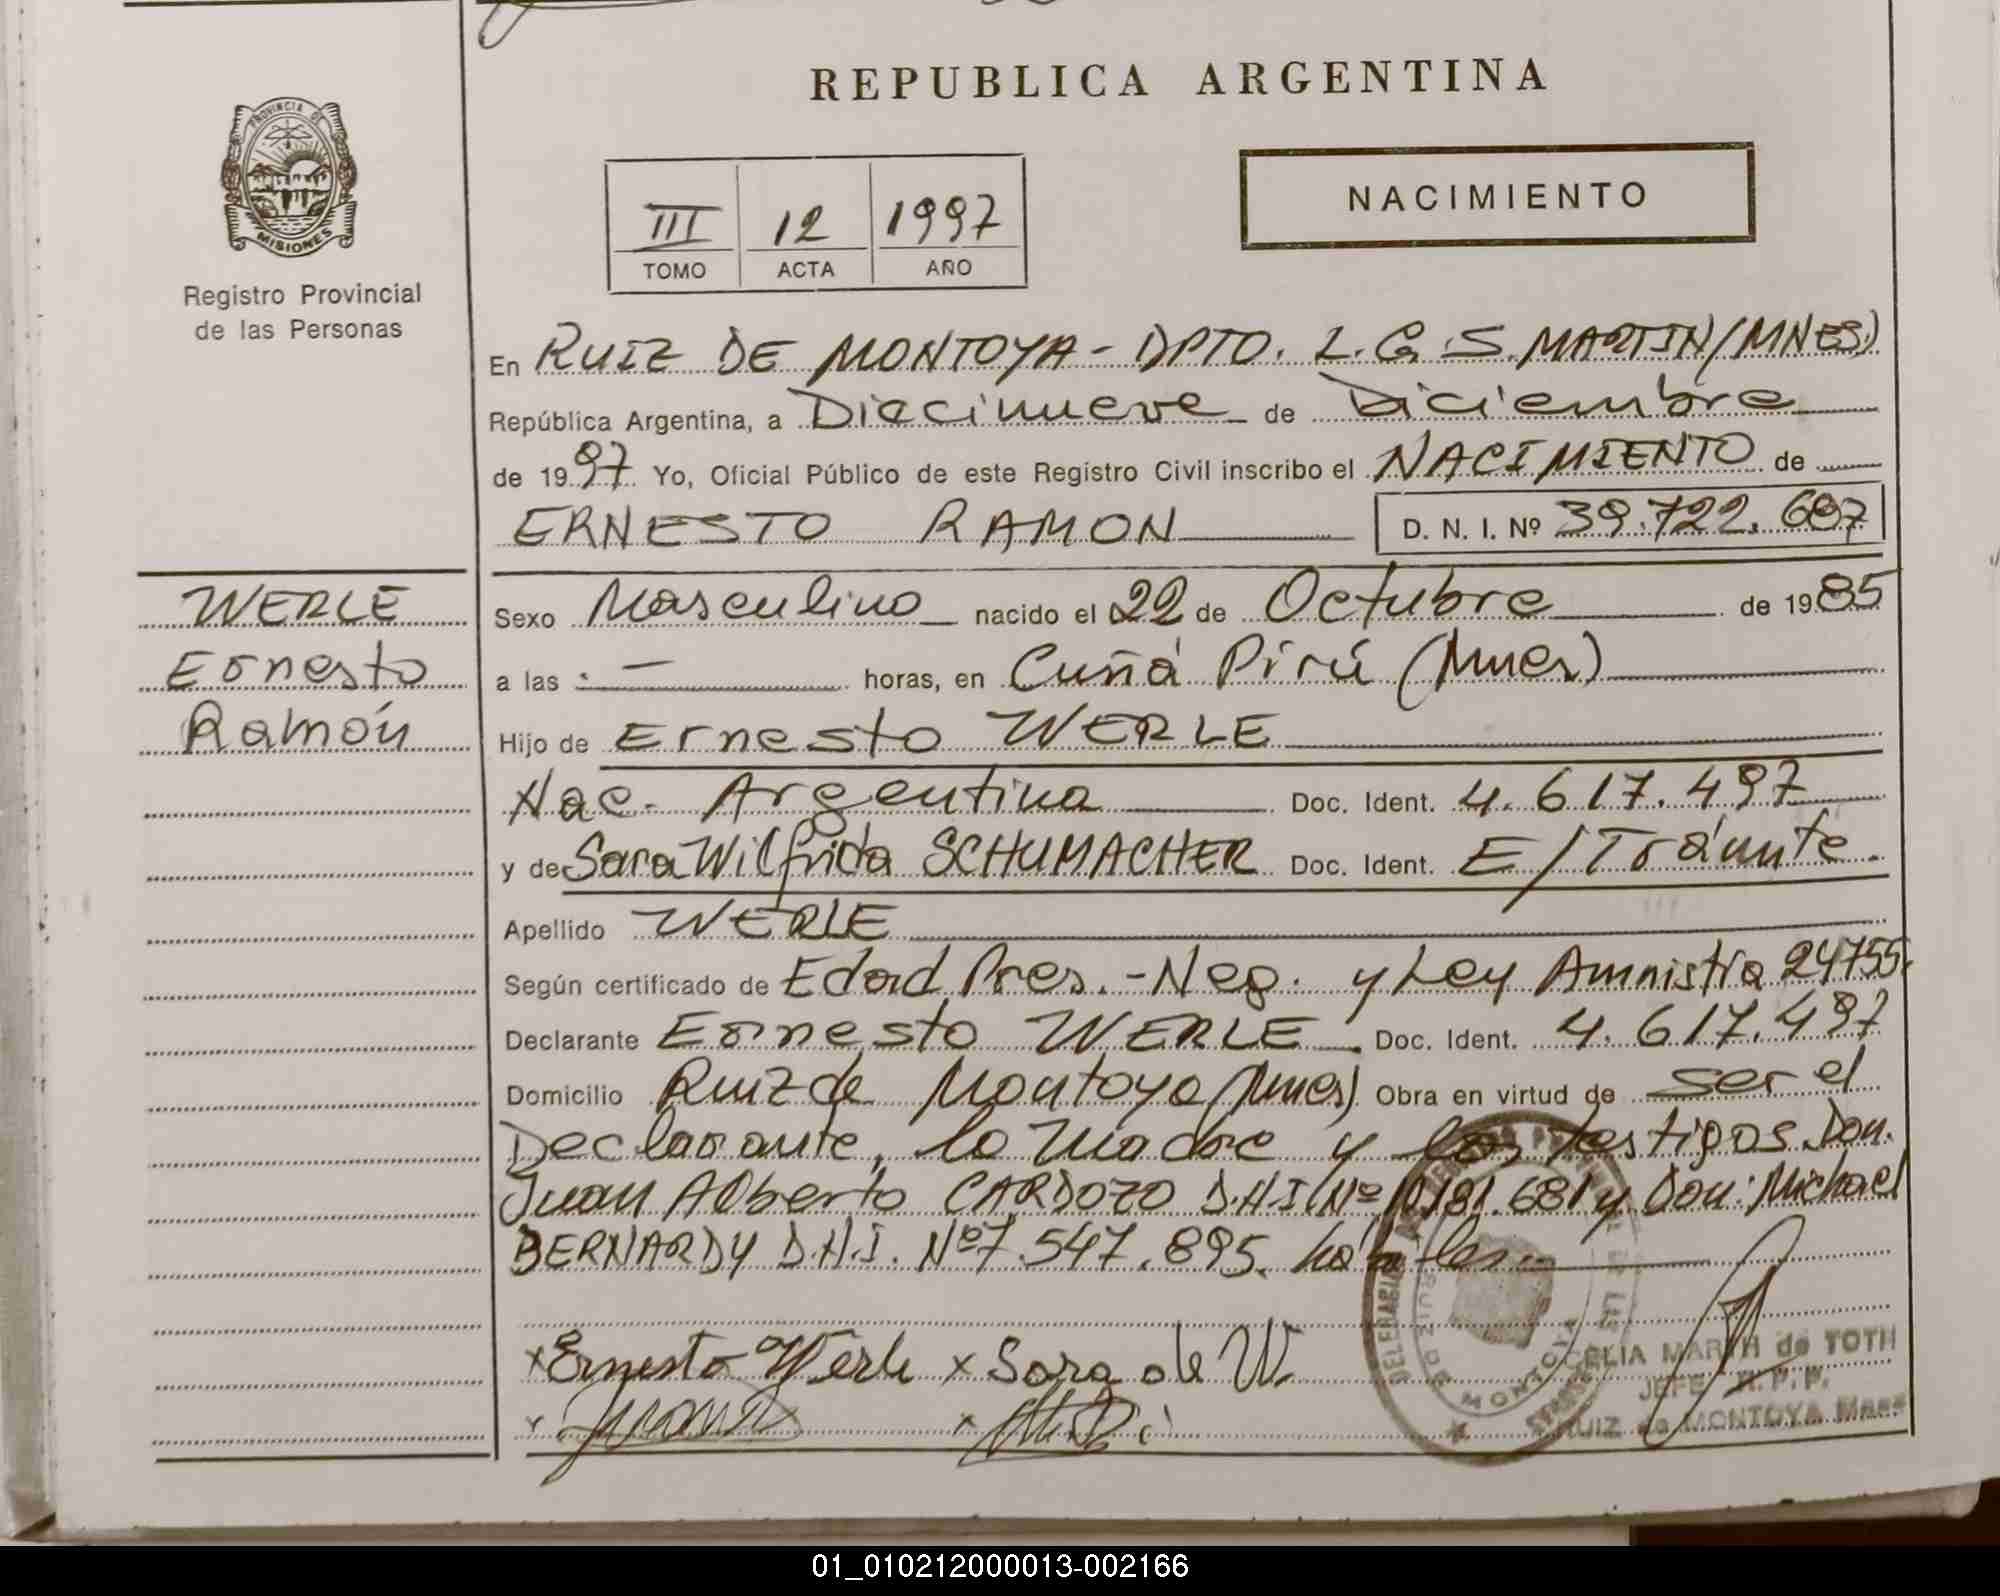 REPUBLICA ARGENTINA
PROVINCIA DE
MISIONES
Registro Provincial
de las Personas
NACIMIENTO
III 12 1997
TOMO ACTA AÑO
En RUIZ DE MONTOYA - DPTO. L. G. S. MARTIN/MNES)
República Argentina, a Diecinueve de Diciembre
de 1997 Yo, Oficial Público de este Registro Civil inscribo el NACIMIENTO de
ERNESTO RAMON D. N. I. Nº 39.722.697
WERLE
Ernesto
Ramón
Sexo Masculino nacido el 22 de Octubre de 1985
a las — horas, en Cuñá Pirú (Mnes)
Hijo de Ernesto WERLE
Nac. Argentina Doc. Ident. 4.617.497
y de Sara Wilfrida SCHUMACHER Doc. Ident. E/Trámite.
Apellido WERLE
Según certificado de Edad Pres. - Neg. y Ley Amnistia 24755.
Declarante Ernesto WERLE Doc. Ident. 4.617.497
Domicilio Ruiz de Montoya (Mnes) Obra en virtud de ser el
Declarante, la madre y los testigos Don.
Juan Alberto CARDOZO D.N.I. Nº 10.181.681 y Don: Michael
BERNARDY D.N.I. Nº 7.547.895. hábiles.
x Ernesto Werle x Sara de W.
CELIA MARTH de TOTH
JEFE R. P. P.
RUIZ de MONTOYA Mnes
01_010212000013-002166